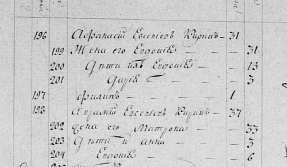 196 Афанасій Евсеевъ Киринъ — 31
199 Жена его Евдокія — 31
200 Дѣти ихъ Евдокія — 13
201 Дарія — 3
197 Филипъ — 1
198 Евсеевъ Киринъ — 37
202 Жена его Матрона — 33
203 Дѣти и Анна — 3
204 Евдокія — 6